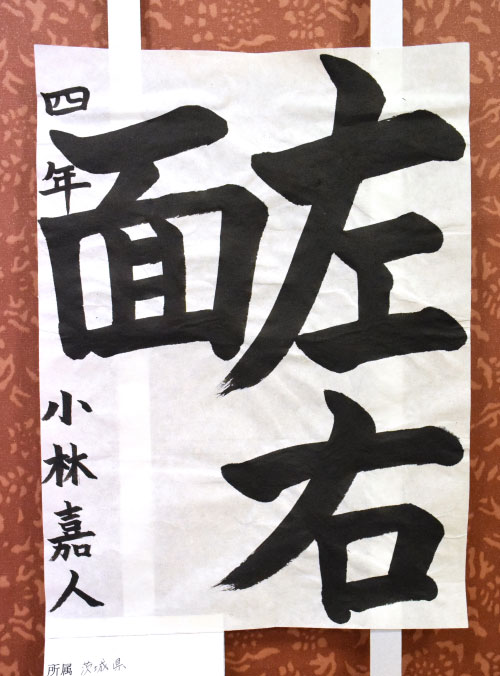 左右
面
四年 小林嘉人
所属 茨城県